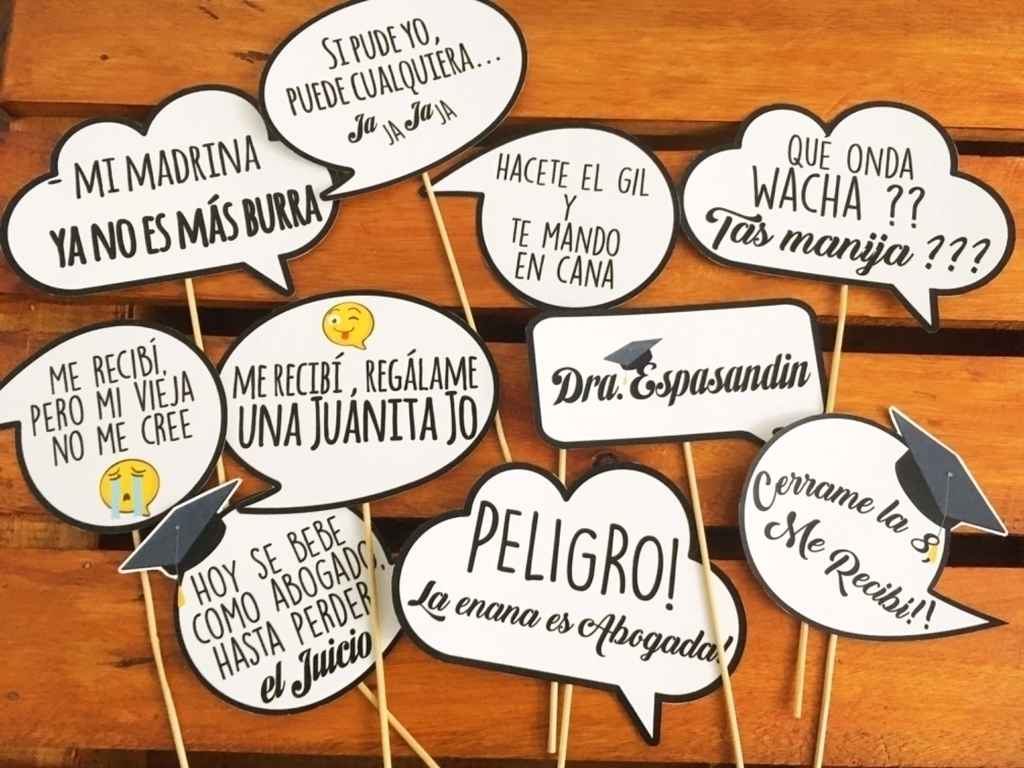 SI PUDE YO,
PUEDE CUALQUIERA...
Ja JA Ja JA
MI MADRINA
YA NO ES MÁS BURRA
HACETE EL GIL
Y
TE MANDO
EN CANA
QUE ONDA
WACHA ??
Tas manija ???
ME RECIBÍ,
PERO MI VIEJA
NO ME CREE
ME RECIBÍ, REGÁLAME
UNA JUÁNITA JO
Dra. Espasandin
HOY SE BEBE
COMO ABOGADO,
HASTA PERDER
el Juicio
PELIGRO!
La enana es Abogada!
Cerrame la 8,
Me Recibi!!